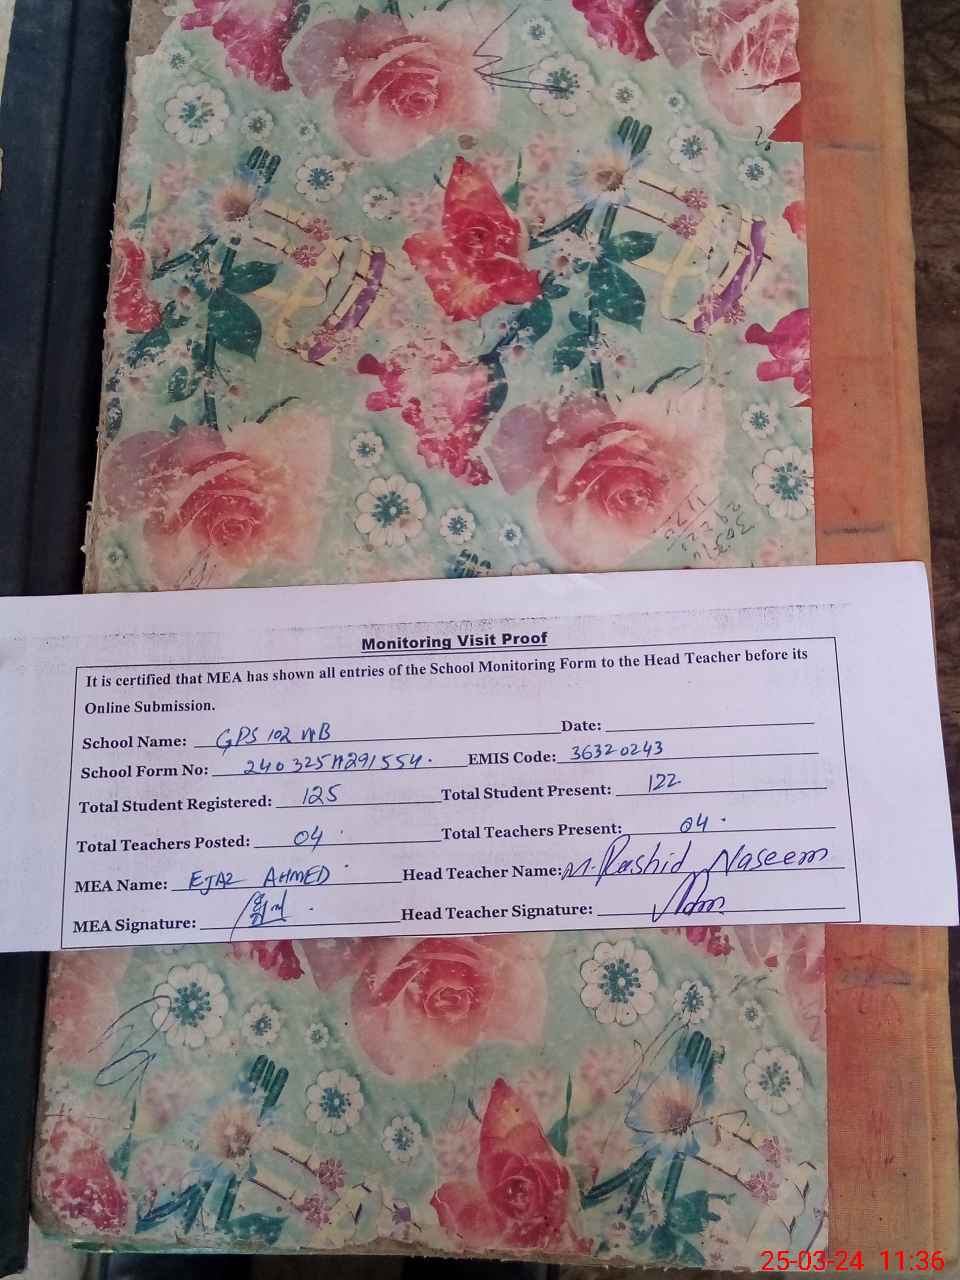 Monitoring Visit Proof
It is certified that MEA has shown all entries of the School Monitoring Form to the Head Teacher before its
Online Submission.
School Name: GPS 102 WB Date:
School Form No: 240325M291554. EMIS Code: 36320243
Total Student Registered: 125 Total Student Present: 122
Total Teachers Posted: 04 Total Teachers Present: 04
MEA Name: EJAZ AHMED Head Teacher Name: M. Rashid Naseem
MEA Signature: Head Teacher Signature:
25-03-24 11:36